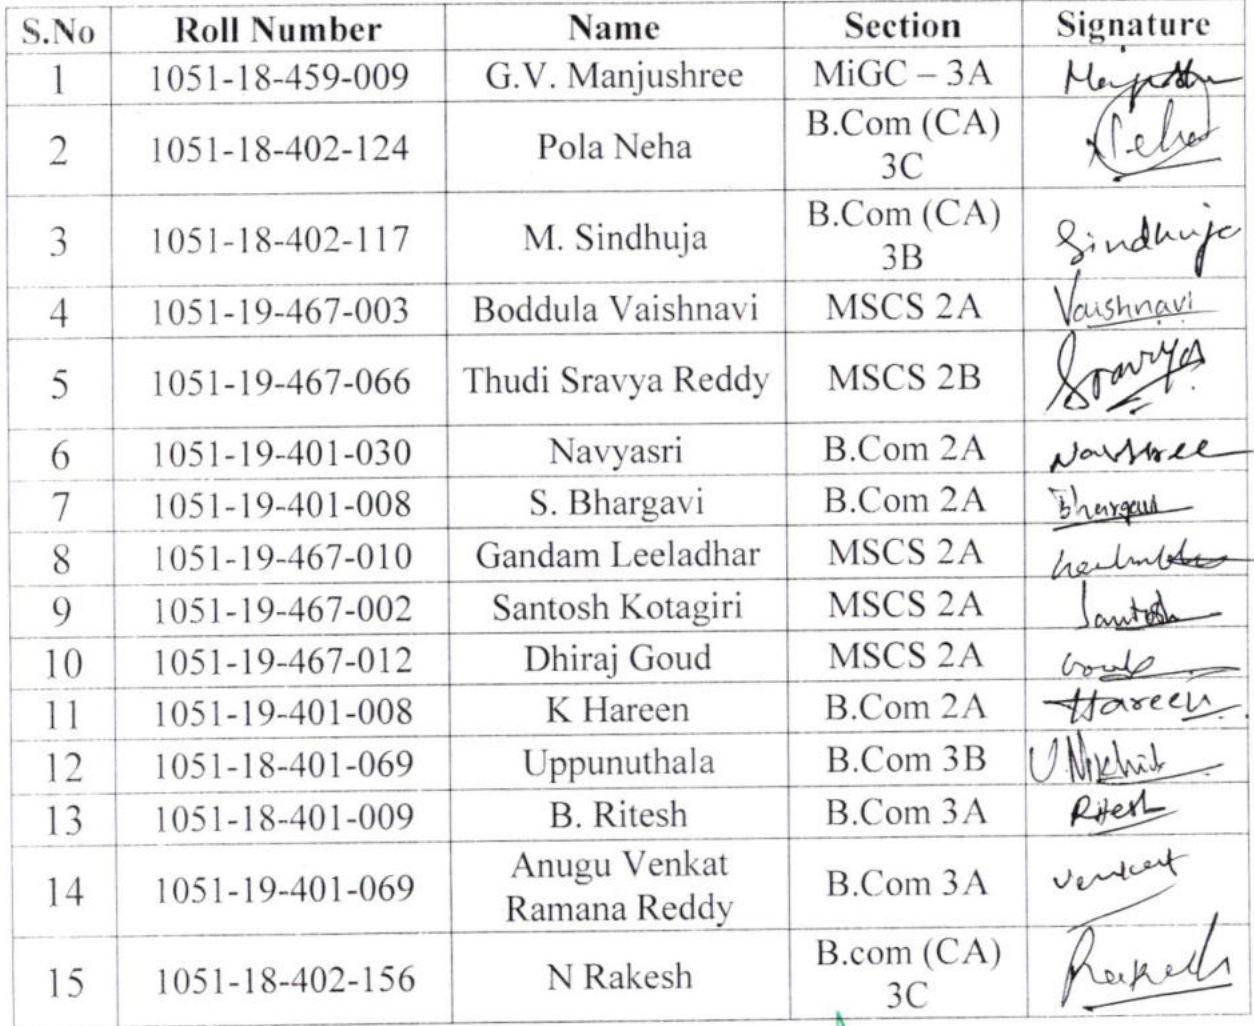 S.No Roll Number Name Section Signature
1 1051-18-459-009 G.V. Manjushree MiGC – 3A
2 1051-18-402-124 Pola Neha B.Com (CA) 3C Neha
3 1051-18-402-117 M. Sindhuja B.Com (CA) 3B Sindhuja
4 1051-19-467-003 Boddula Vaishnavi MSCS 2A Vaishnavi
5 1051-19-467-066 Thudi Sravya Reddy MSCS 2B Sravya
6 1051-19-401-030 Navyasri B.Com 2A
7 1051-19-401-008 S. Bhargavi B.Com 2A Bhargavi
8 1051-19-467-010 Gandam Leeladhar MSCS 2A
9 1051-19-467-002 Santosh Kotagiri MSCS 2A Santosh
10 1051-19-467-012 Dhiraj Goud MSCS 2A Goud
11 1051-19-401-008 K Hareen B.Com 2A Hareen
12 1051-18-401-069 Uppunuthala B.Com 3B U. Nikhil
13 1051-18-401-009 B. Ritesh B.Com 3A Ritesh
14 1051-19-401-069 Anugu Venkat Ramana Reddy B.Com 3A Venkat
15 1051-18-402-156 N Rakesh B.com (CA) 3C Rakesh